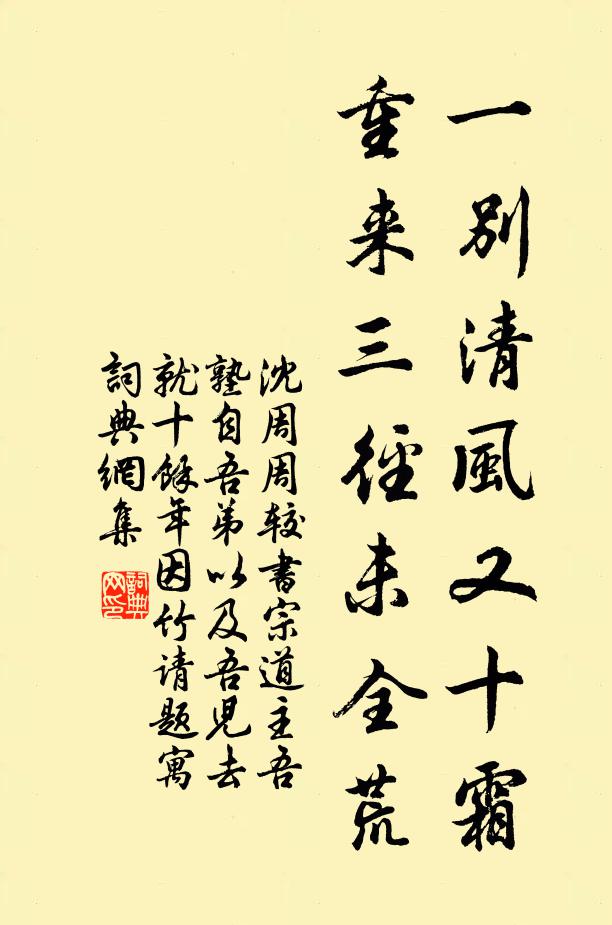 一别清風又十霜
重来三径未全荒
沈周周较書宗道主吾
塾自吾弟以及吾児去
就十餘年因竹请题寓
詞典網集
詞典
网印